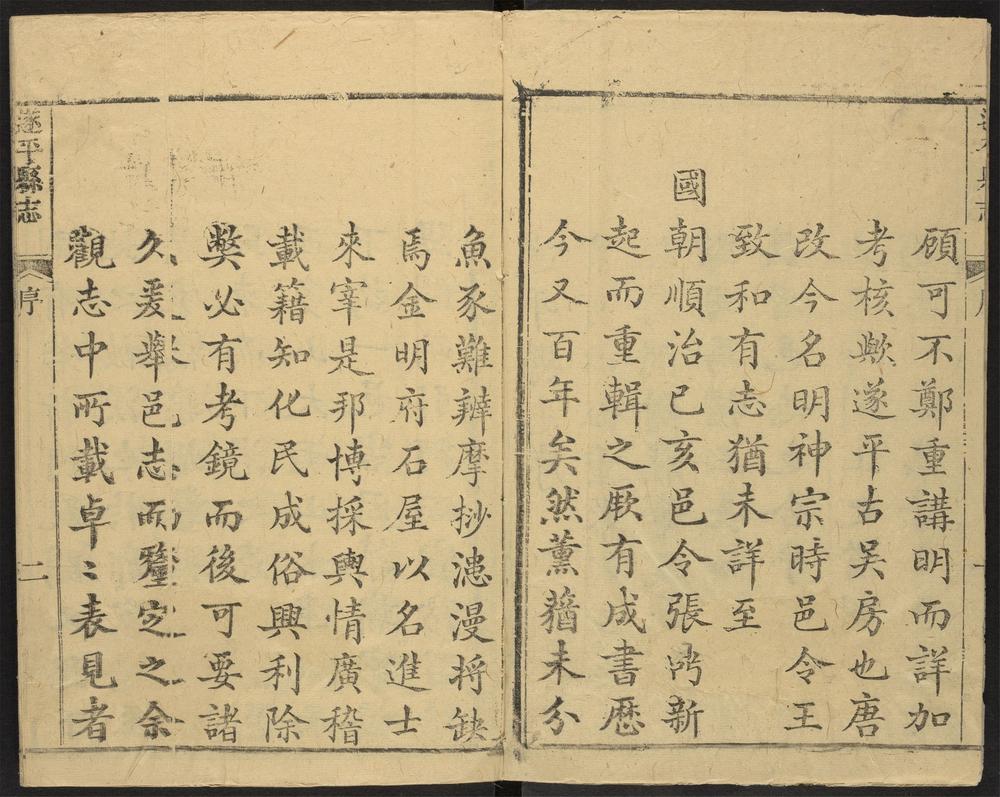 顧可不鄭重講明而詳加
考核歟遂平古吳房也唐
改今名明神宗時邑令王
致和有志猶未詳至
國朝順治已亥邑令張鼎新
起而重輯之厥有成書歷
今又百年矣然薰蕕未分
魚豕難辨摩抄漶漫將缺
焉金明府石屋以名進士
來宰是邦博採輿情廣稽
載籍知化民成俗興利除
獘必有考鏡而後可要諸
久爰舉邑志而釐定之余
觀志中所載卓〻表見者
遂平縣志
序
二